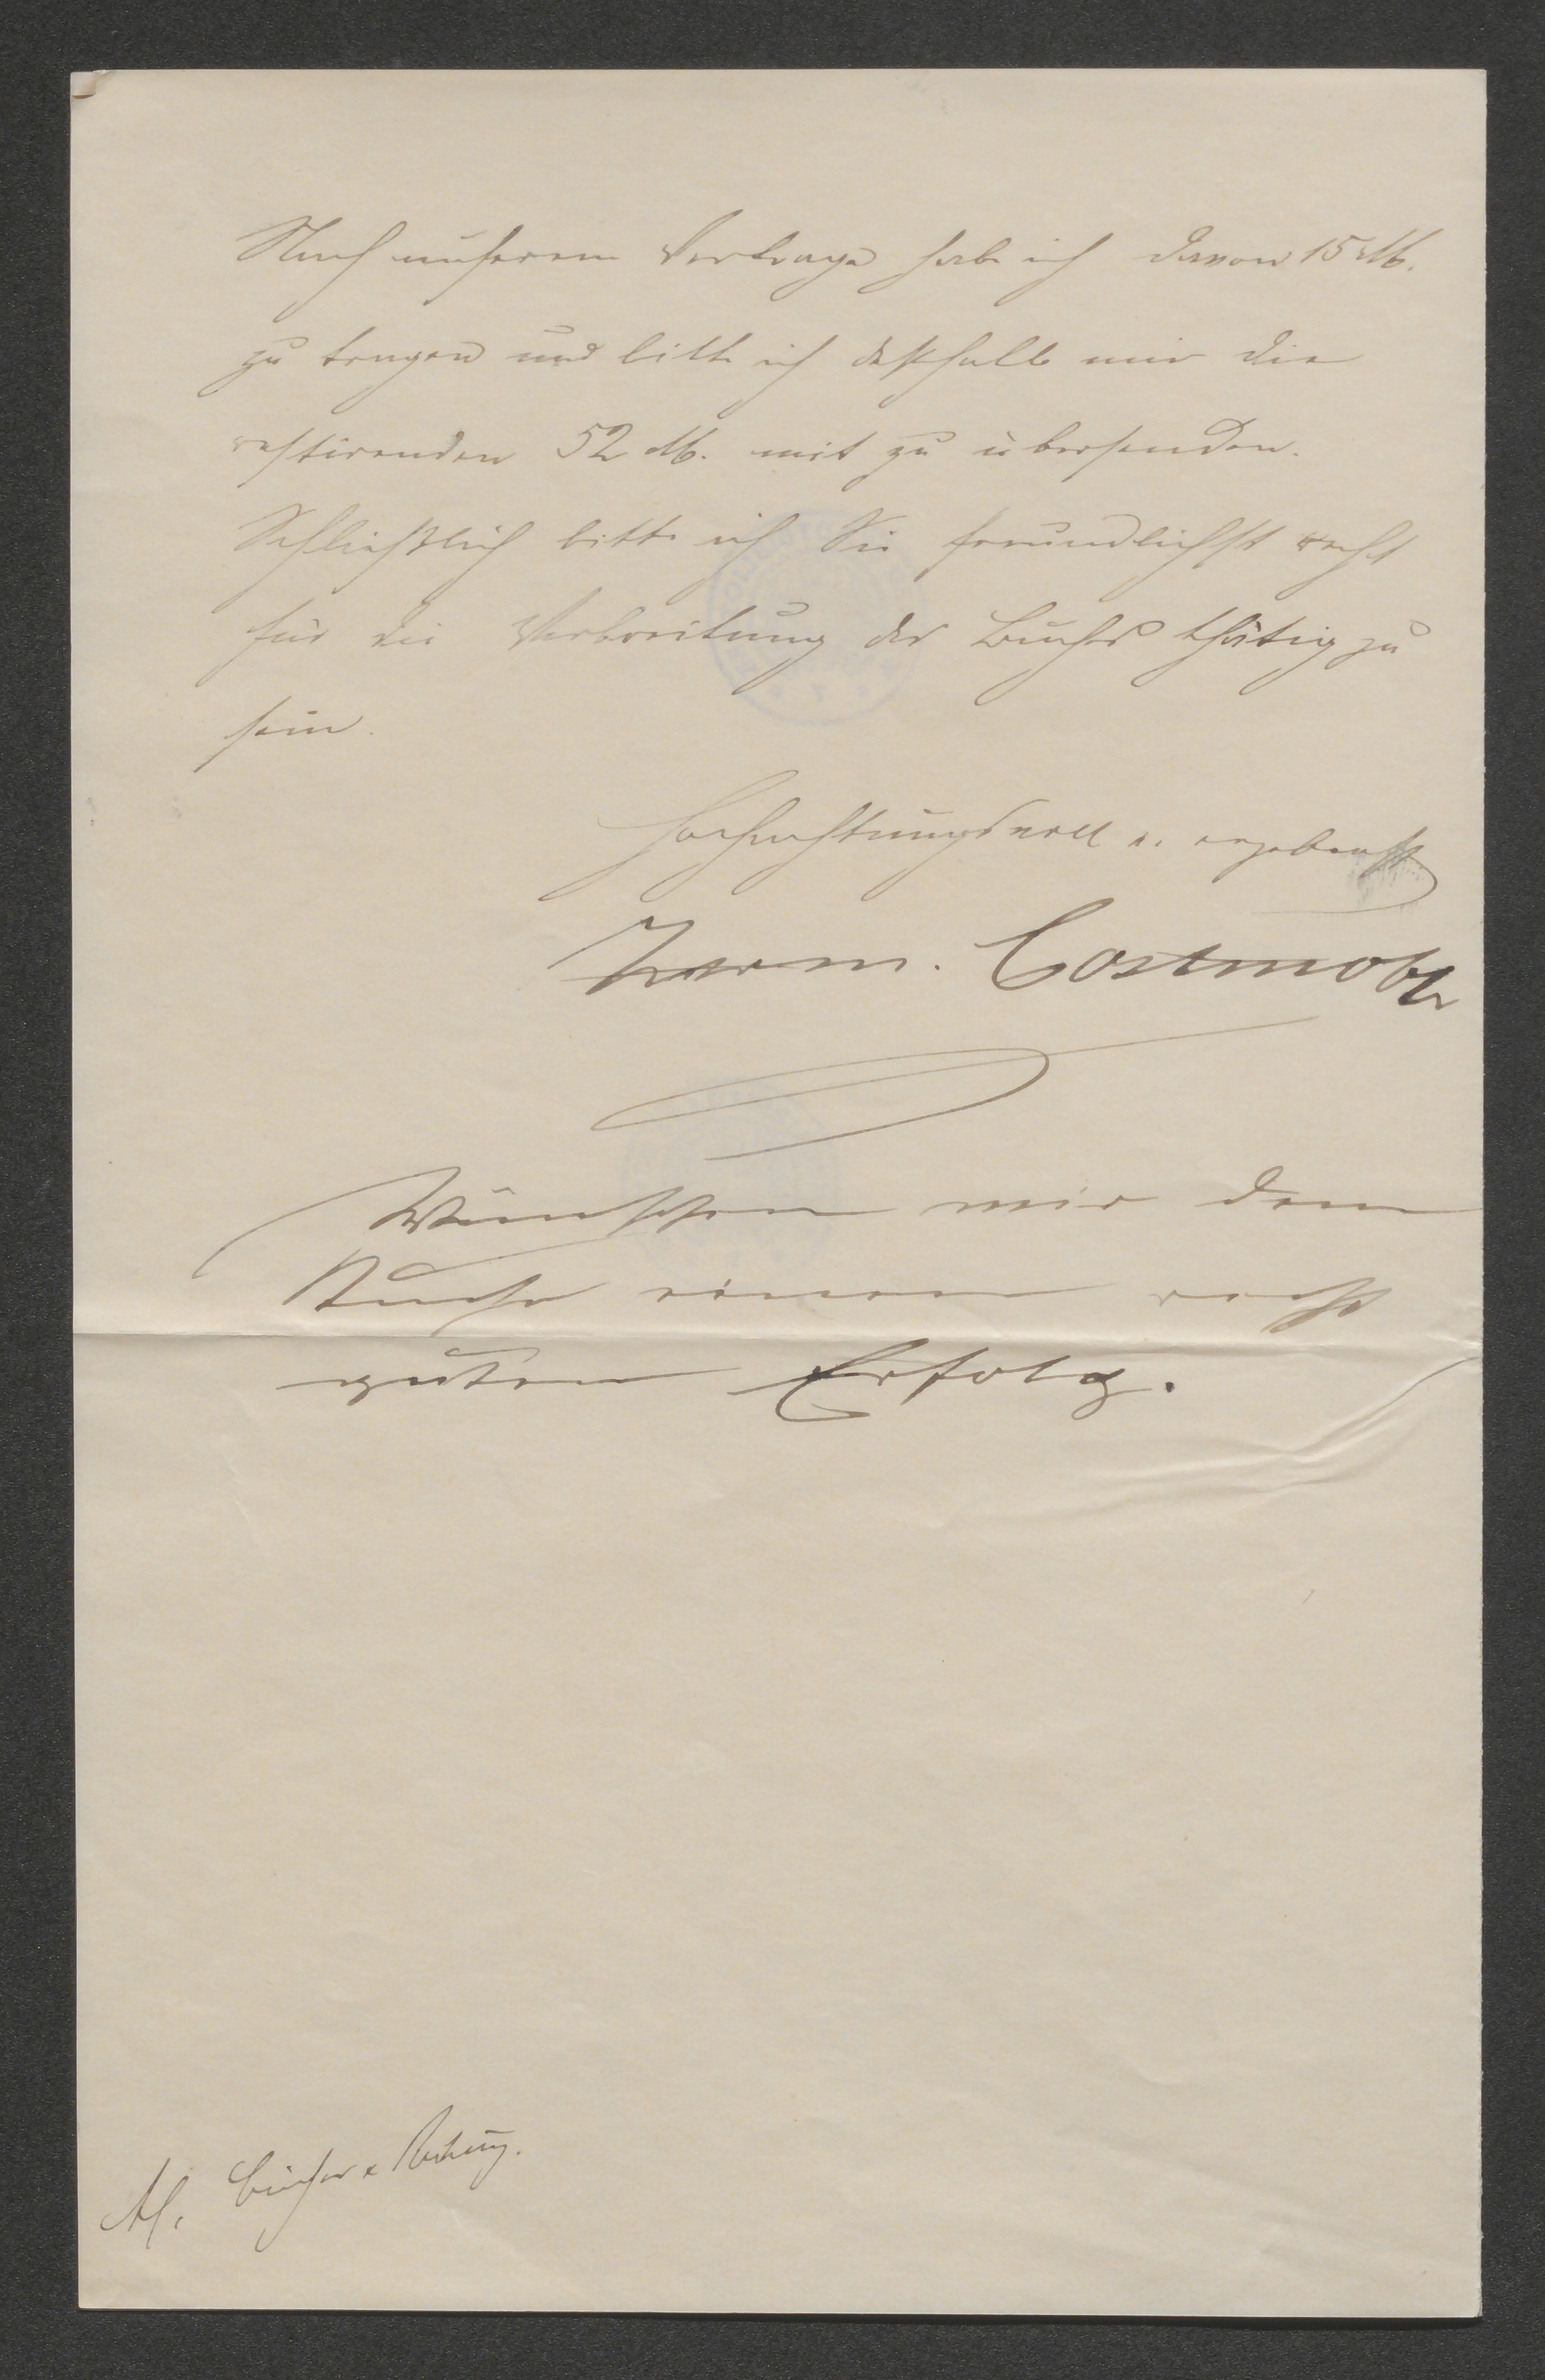 Nach unserem Vertrage habe ich davon 15 M.
zu tragen und bitte ich deßhalb mir die
restirenden 52 M. mit zu übersenden.
Schließlich bitte ich Sie freundlichst recht
für die Verbreitung des Buches thätig zu
sein.
Hochachtungsvoll u. ergebenst
Herm. Costenoble
Wünschen wir dem
Buche einen recht
guten Erfolg.
Bücher &